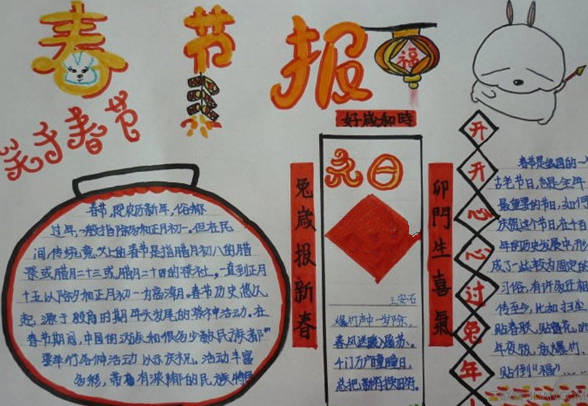 春节报
福
关于春节
好歲和時
兔歲报新春
卯門生喜氣
元日
王安石
爆竹声中一岁除,
春风送暖入屠苏。
千门万户曈曈日,
总把新桃换旧符
开开心心过兔年
春节,即农历新年,俗称
过年,一般指除夕和正月初一。但在民
间,传统意义上的春节是指腊月初八的腊
祭或腊月二十三或腊月二十四的祭社,一直到正月
十五,以除夕和正月初一为高潮。春节历史悠久
起源于殷商时期年头岁尾的祭神活动。在
春节期间,中国的汉族和很多少数民族都
要举行各种活动以示庆祝。活动丰富
多彩,带有浓郁的民族特
春节是我国的一
古老节日,也是全年
最重要的节日,如何
庆贺这个节日,在千百
年的历史发展中,形
成了一些较为固定的
习俗,有许多还相
传至今,比如扫尘
贴春联、贴窗花、
年夜饭、放爆竹、
贴倒“福”……